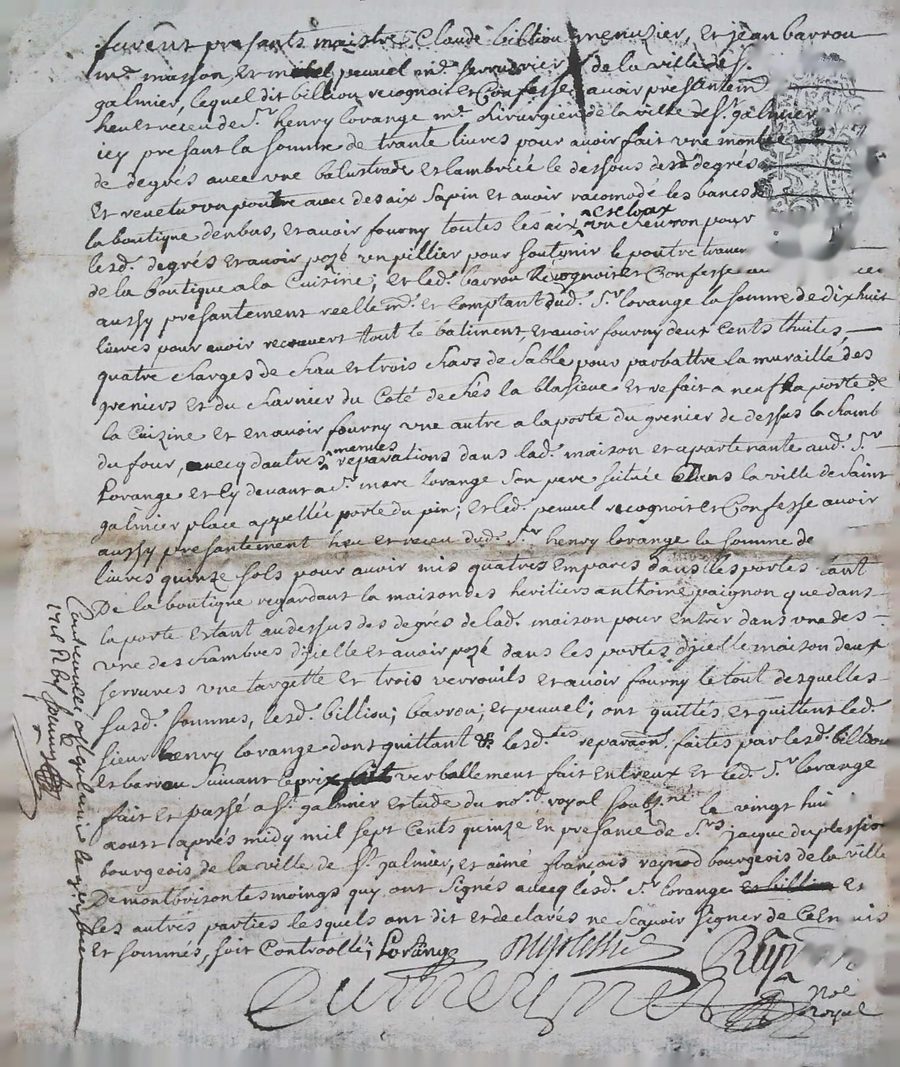 furent presants maistre Claude billiou menuzier, et jean barrou
md. masson et michel peuvel md. serrurier de la ville de st.
galmier, lequel dit billiou recognoit et Confesse avoir presantemt
heu et reseu de sr. henry lorange me. chirurgien de la ville de st. galmier
icy presant la somme de trante livres pour avoir fait une monte
de degrés avec une balustrade et lambricé le dessous desd. degrés
et revetu un poutre avec des aix sapin et avoir racomodé les bancs d
la boutique den bas, et avoir fourny toutes les aix et cloux un chevron pour
lesd. degrés et avoir pozé un pillier pour soutenir le poutre traver
de la boutique a la Cuizine; et led. barrou recognoit et Confesse
aussy presantement reellemt. et Comptant dud. sr. lorange la somme de dix huit
livres pour avoir recouvert tout le batiment, et avoir fourny deux Cents thuiles
quatre charges de chau et trois chars de sable pour parbattre la muraille des
greniers et du charnier du Coté de chés la blasieue et refait a neuf la porte de
la Cuizine et en avoir fourny une autre a la porte du grenier de dessus la chamb
du four, avecq dautres menues reparations dans lad. maison et apartenante aud. sr
Lorange et cy devant a sr. marc lorange son pere située dens la ville de saint
galmier place appellée porte du pin; et led. peuvel recognoit et Confesse avoir
aussy presantement heu et receu dud. sr henry lorange la somme de
livres quinze sols pour avoir mis quatres empares dans les portes tant
De la boutique regardant la maison des heritiers anthoine paignon que dans
la porte estant au dessus des degrés de lad. maison pour entrer dans une des
une des chambres dicelle et avoir pozé dans les portes dicelle maison deux
serrures une targette et trois verrouils et avoir fourny le tout desquelles
susd. sommes, lesd. billiou; barrou; et peuvel; ont quittés et quittent led.
sieur henry lorange dont quittant & lesd. tes reparaōn. faites par lesd. billiou
et barrou suivant le prix fait verballement fait entreux et led. sr. lorange
fait et passé a st. galmier estude du nore. royal soubzné le vingt hui
aoust aprés midy mil sept Cents quinze en presance de srs jacque duplessis
bourgeois de la ville de st. galmier, et aimé françois raynod bourgeois de la ville
De montbrison tesmoings quy ont signés avecq lesd. sr. lorange et billiou et
les autres parties lesquels ont dit et declarés ne scavoir signer de Ce en uis
et sommés, soit Controollé; Lorange duplessis
nore
royal
Controullé a st galmier le